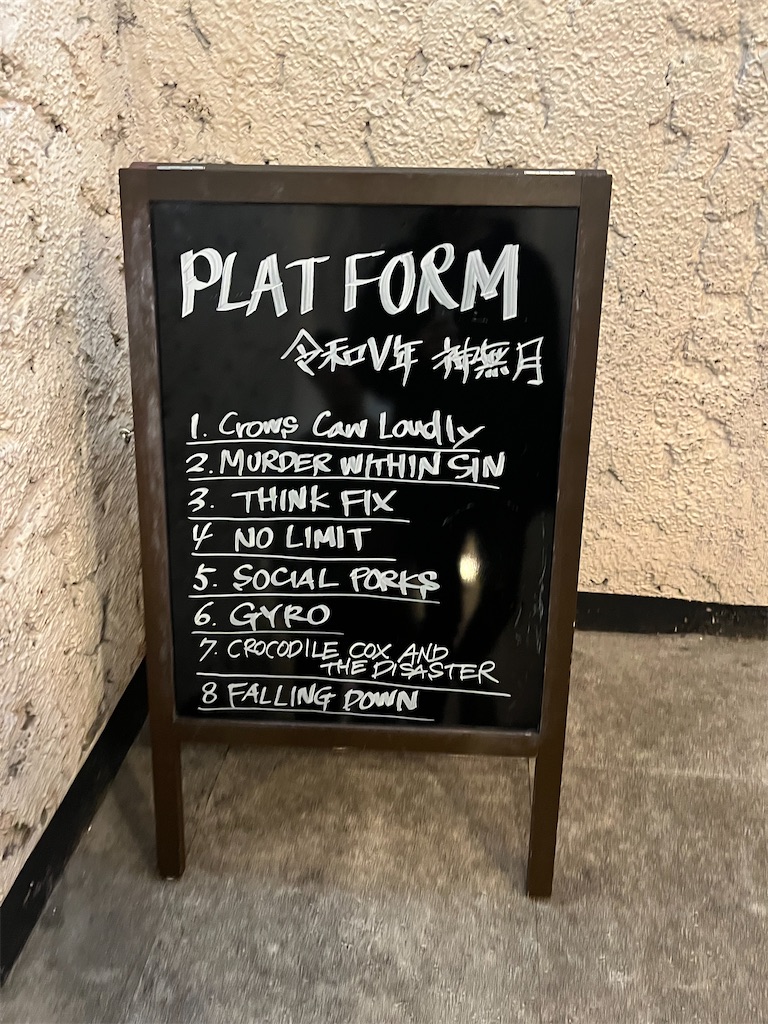 PLATFORM
令和V年 神無月
1. Crows Caw Loudly
2. MURDER WITHIN SIN
3. THINK FIX
4 NO LIMIT
5. SOCIAL PORKS
6. GYRO
7. CROCODILE COX AND
THE DISASTER
8 FALLING DOWN